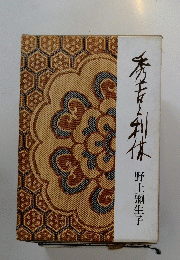 秀吉と利休
野上彌生子